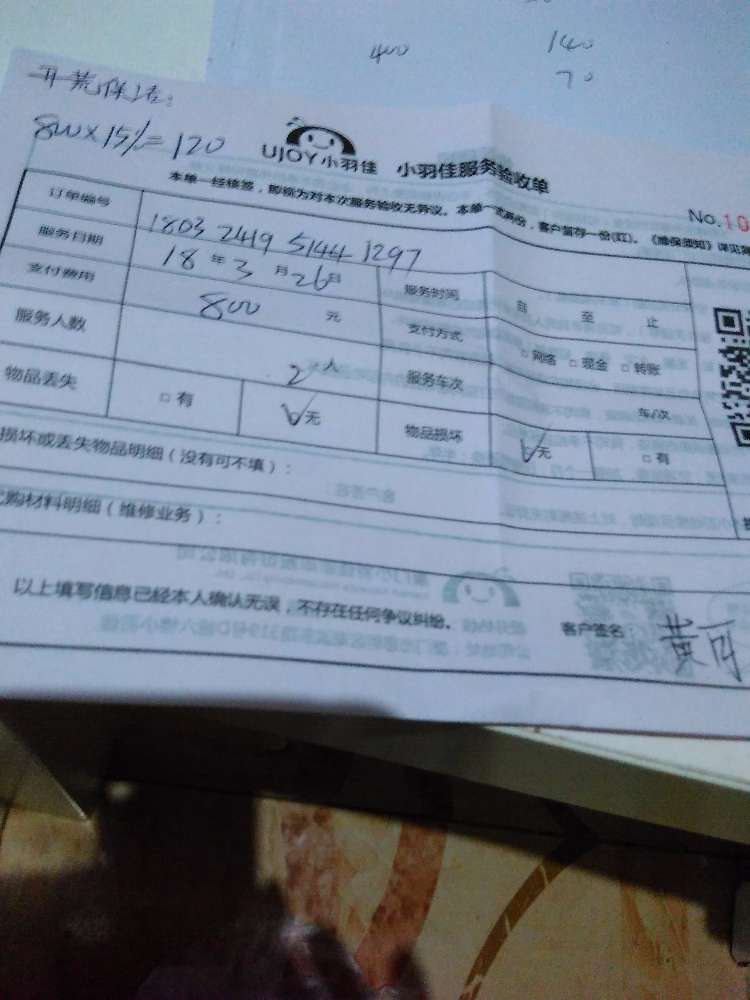 400
140
70
开荒保洁:
800×15%=120
UJOY小羽佳 小羽佳服务验收单
No.10
本单一经核签,即视为对本次服务验收无异议。本单一式两份,客户留存一份(红)。《维保须知》详见
订单编号 1803 2419 5144 1297
服务日期 18年3月26日 服务时间 自 至 止
支付费用 800元 支付方式 □网络 □现金 □转账
服务人数 2人 服务车次 车/次
物品丢失 □有 ☑无 物品损坏 ☑无 □有
损坏或丢失物品明细(没有可不填):
购材料明细(维修业务):
以上填写信息已经本人确认无误,不存在任何争议纠纷。 客户签名 黄